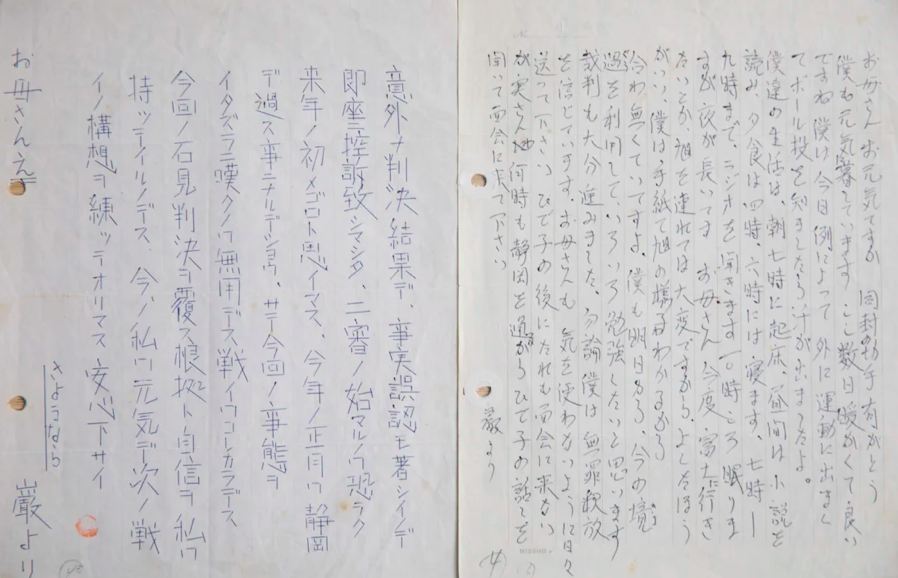 お母さんお元気ですか 同封の切手有がとう
僕も元気で暮しています ここ数日暖かくて良い
ですね 僕は今日例によって外に運動に出まし
てボール投を知ましたら汗が出ましたよ。
僕達の生活は、朝七時に起床、昼間は小説を
読み、夕食は四時、六時には寝ます、七時ー
九時まで、ラジオを聞きます 一〇時ころ眠りま
すが夜が長いです お母さん 今度富士行き
たいとか、旭を連れては大変ですから、よしたほう
がいい、僕は手紙で旭の様子わかるから
会わ無くていですよ、僕も明日から、今の境
遇を利用して、いろいろ勉強したいと思います
裁判も大分進みました、勿論僕は無罪釈放
を信じています、お母さんも気を使わないように日々
送って下さい ひで子の後にだれも面会に来ない
が実さん 何時も静岡を通がるひで子の話しを
聞いて面会に来て下さい
巌より
意外ナ判決結果デ、事実誤認モ著シイノデ
即座ニ控訴致シマシタ、二審ノ始マルノハ恐ラク
来年ノ初メゴロト思イマス、今年ノ正月ハ静岡
デ過ス事ニナルデショウ、サテ今回ノ事態ヲ
イタズラニ嘆クノハ無用デス戦イハコレカラデス
今回ノ石見判決ヲ覆ス根拠ト自信ヲ私ハ
持ッテイルノデス、今ノ私ハ元気デ次ノ戦
イノ構想ヲ練ッテオリマス 安心下サイ
さようなら
お母さんえ
巌より